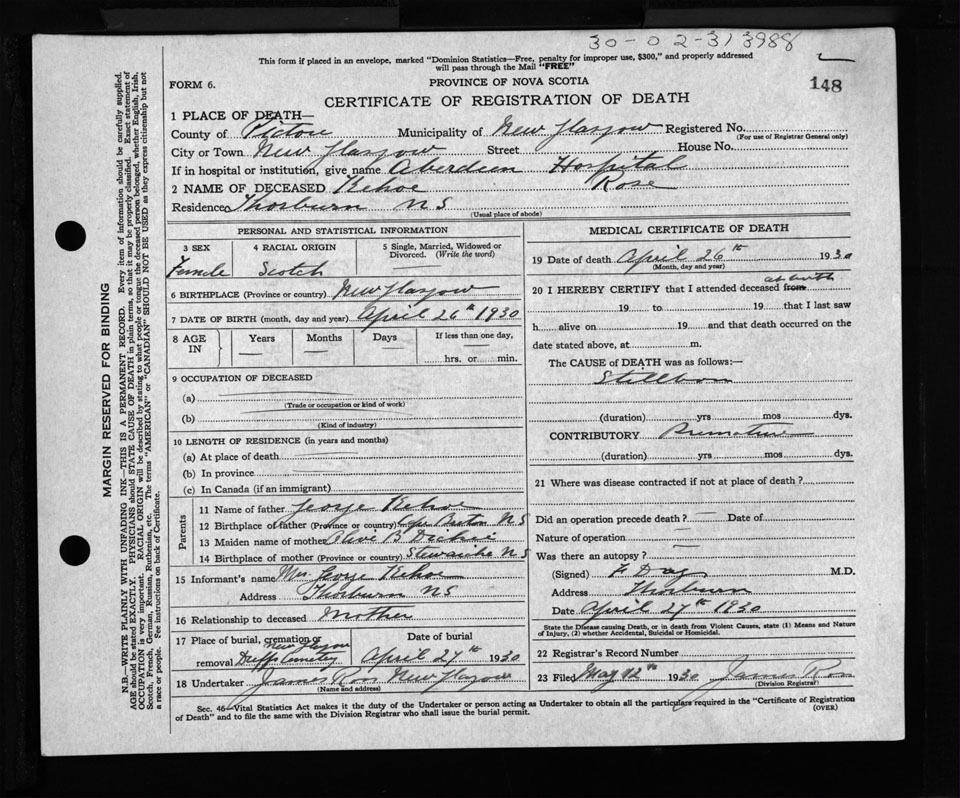 30-02-313988
This form if placed in an envelope, marked "Dominion Statistics—Free, penalty for improper use, $300," and properly addressed
will pass through the Mail "FREE"
FORM 6.
PROVINCE OF NOVA SCOTIA
148
CERTIFICATE OF REGISTRATION OF DEATH
1 PLACE OF DEATH—
County of Pictou Municipality of New Glasgow Registered No.
(For use of Registrar General only)
City or Town New Glasgow Street House No.
If in hospital or institution, give name Aberdeen Hospital
2 NAME OF DECEASED Kehoe Rose
Residence Thorburn N S
(Usual place of abode)
PERSONAL AND STATISTICAL INFORMATION
3 SEX 4 RACIAL ORIGIN 5 Single, Married, Widowed or Divorced. (Write the word)
Female Scotch
6 BIRTHPLACE (Province or country) New Glasgow
7 DATE OF BIRTH (month, day and year) April 26th 1930
8 AGE IN Years Months Days If less than one day,
hrs. or min.
9 OCCUPATION OF DECEASED
(a)
(Trade or occupation or kind of work)
(b)
(Kind of industry)
10 LENGTH OF RESIDENCE (in years and months)
(a) At place of death
(b) In province
(c) In Canada (if an immigrant)
Parents
11 Name of father George Kehoe
12 Birthplace of father (Province or country) Cape Breton N S
13 Maiden name of mother Olive B Dickie
14 Birthplace of mother (Province or country) N S
15 Informant's name Mrs George Kehoe
Address Thorburn N S
16 Relationship to deceased Mother
17 Place of burial, cremation or New Glasgow
removal Duffs Cemetery
Date of burial
April 27th 1930
18 Undertaker James Ross New Glasgow
(Name and address)
MEDICAL CERTIFICATE OF DEATH
19 Date of death April 26th 1930
(Month, day and year)
at birth
20 I HEREBY CERTIFY that I attended deceased from
19 to 19 that I last saw
h alive on 19 and that death occurred on the
date stated above, at m.
The CAUSE of DEATH was as follows:—
Stillborn
(duration) yrs mos dys.
CONTRIBUTORY Premature
(duration) yrs mos dys.
21 Where was disease contracted if not at place of death?
Did an operation precede death? — Date of
Nature of operation —
Was there an autopsy? —
(Signed) M.D.
Address Thorburn
Date April 27th 1930
State the Disease causing Death, or in death from Violent Causes, state (1) Means and Nature
of Injury, (2) whether Accidental, Suicidal or Homicidal.
22 Registrar's Record Number
23 Filed May 12th 1930 James Ross
(Division Registrar)
Sec. 46—Vital Statistics Act makes it the duty of the Undertaker or person acting as Undertaker to obtain all the particulars required in the "Certificate of Registration
of Death" and to file the same with the Division Registrar who shall issue the burial permit.
(OVER)
MARGIN RESERVED FOR BINDING
N.B.—WRITE PLAINLY WITH UNFADING INK—THIS IS A PERMANENT RECORD. Every item of information should be carefully supplied.
AGE should be stated EXACTLY. PHYSICIANS should STATE CAUSE OF DEATH in plain terms, so that it may be properly classified. Exact statement of
OCCUPATION is very important. RACIAL ORIGIN will be described by stating to what people or tongue the deceased person belonged, whether English, Irish,
Scotch, French, German, Russian, Ruthenian, etc. The terms "AMERICAN" or "CANADIAN" SHOULD NOT BE USED as they express citizenship but not
a race or people. See instructions on back of Certificate.